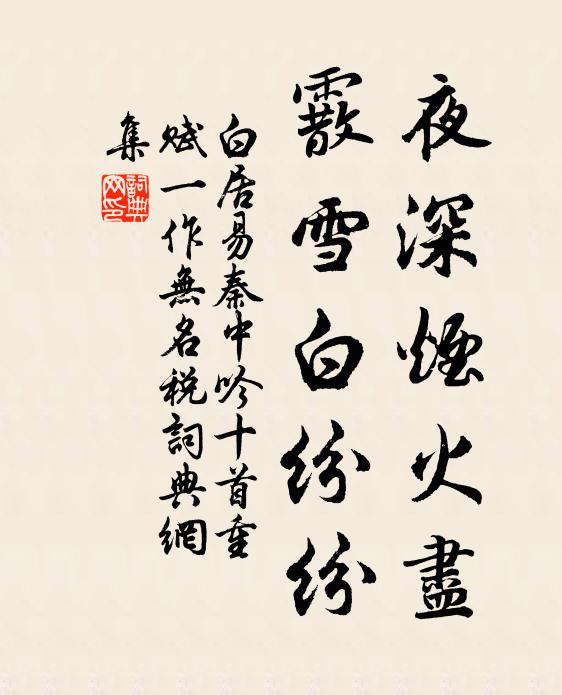 夜深煙火盡
霰雪白紛紛
白居易秦中吟十首重
賦一作無名税詞典網
集
詞典網印